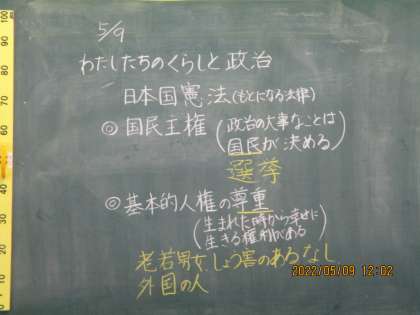 5/9
わたしたちのくらしと政治
日本国憲法(もとになる法律)
◎国民主権(政治の大事なことは
国民が決める)
選挙
◎基本的人権の尊重
(生まれた時から幸せに
生きる権利がある)
老若男女、しょう害のあるなし
外国の人
2022/05/09 12:02
100
90
80
70
60
50
40
30
20
10